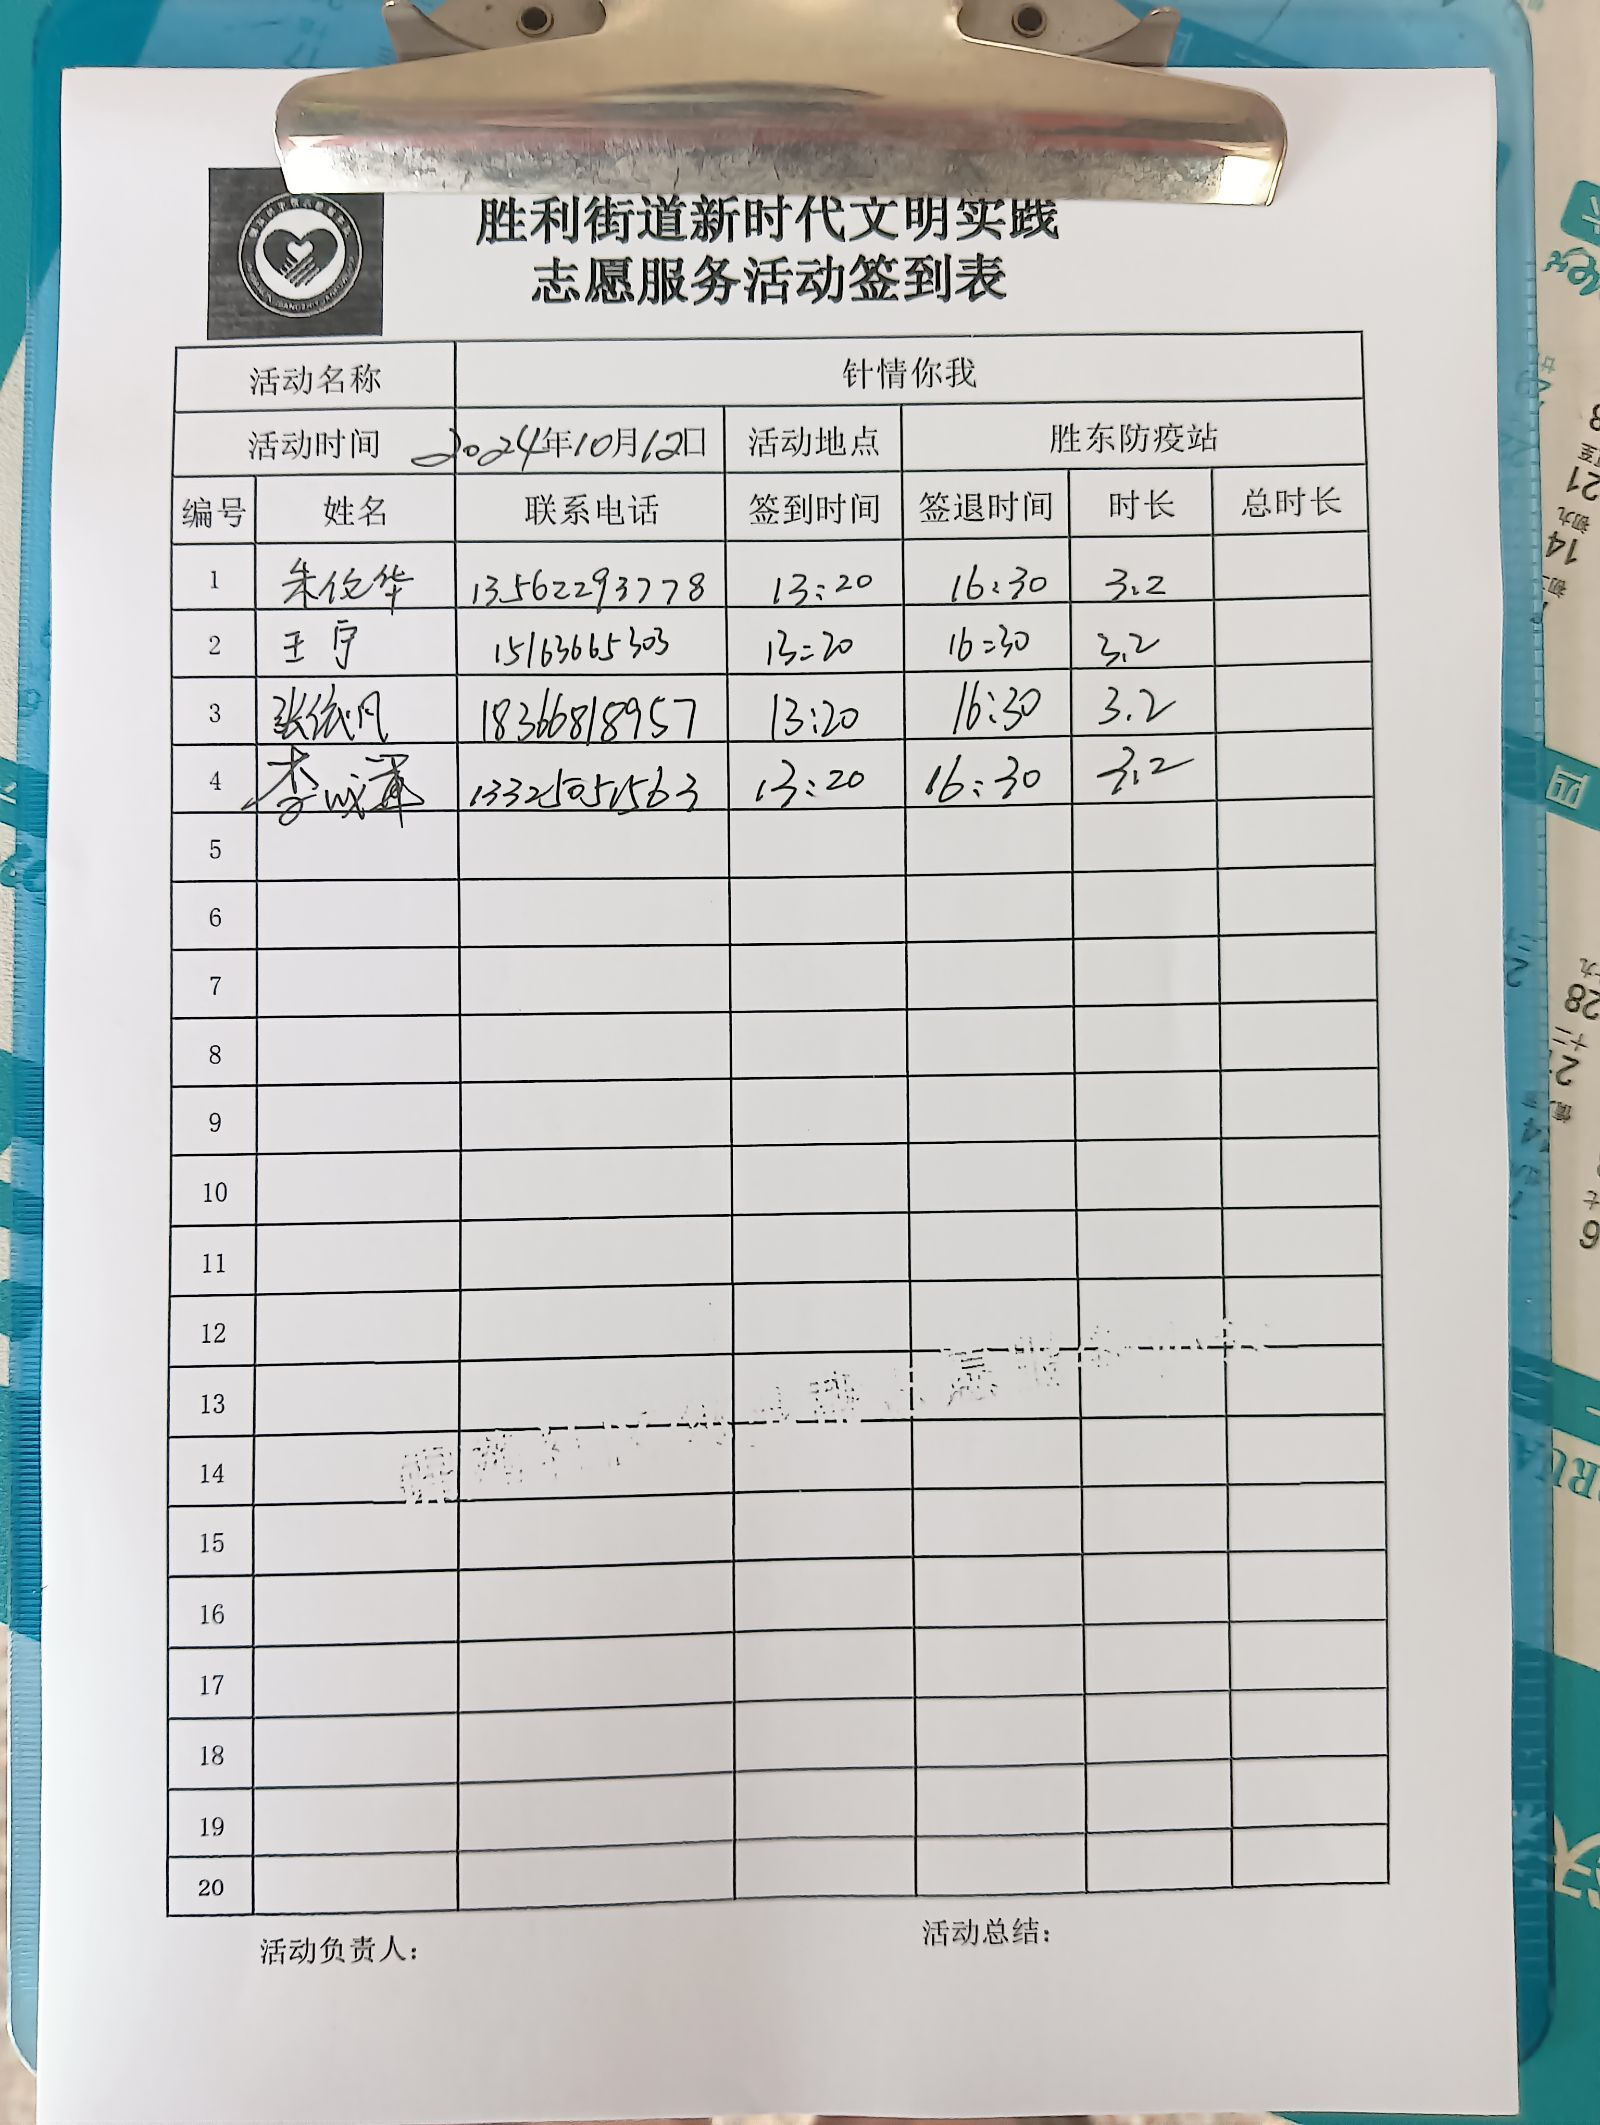 胜利街道新时代文明实践
志愿服务活动签到表
活动名称 针情你我
活动时间 2024年10月12日 活动地点 胜东防疫站
编号 姓名 联系电话 签到时间 签退时间 时长 总时长
1 朱俊华 13562293778 13:20 16:30 3.2
2 王宇 15163665303 13:20 16:30 3.2
3 张依凡 18366818957 13:20 16:30 3.2
4 李 13325051563 13:20 16:30 3.2
5
6
7
8
9
10
11
12
13
14
15
16
17
18
19
20
活动负责人： 活动总结：
21
14
28
四